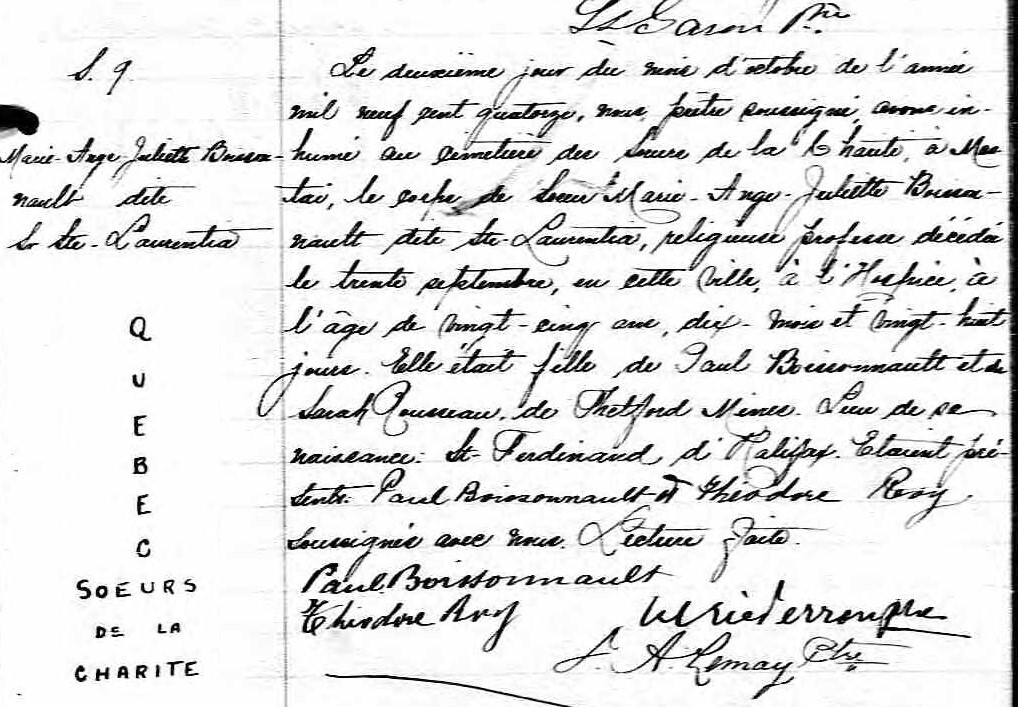 Ptre
S. 9.
Marie-Ange-Juliette Bosson-
nault dite
Sr Ste-Laurentia
QUEBEC
SOEURS
DE LA
CHARITE
Le deuxième jour du mois d'octobre de l'année
mil neuf cent quatorze, nous, prêtre soussigné, avons in-
humé au cimetière des Soeurs de la Charité, à Mas-
tai, le corps de Soeur Marie-Ange-Juliette Boisson-
nault dite Ste-Laurentia, religieuse professe décédée
le trente septembre, en cette ville, à l'Hospice, à
l'âge de vingt-cinq ans, dix-mois et vingt-huit
jours. Elle était fille de Paul Boissonnault et de
Sarah Rousseau, de Thetford Mines. Lieu de sa
naissance: St-Ferdinand d'Halifax. Etaient pré-
sents: Paul Boissonnault et Théodore Roy
soussignés avec nous. Lecture faite.
Paul Boissonnault
Théodore Roy
Ptre
A. Lemay Ptre